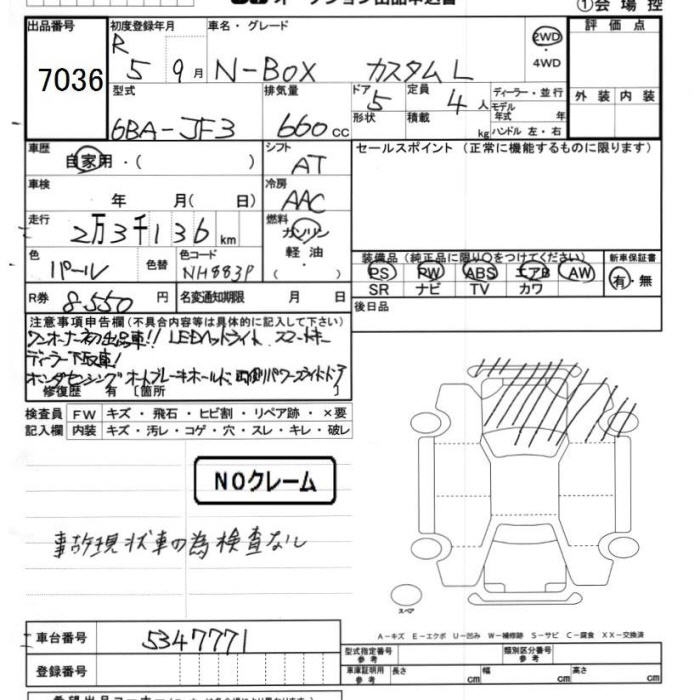 オークション出品申込書
①会場控
出品番号
7036
初度登録年月
R5 9月
車名・グレード
N-BOX カスタムL
2WD
・4WD
評価点
外装 内装
型式
6BA-JF3
排気量
660cc
ドア
5
形状
定員
4人
積載
kg
ディーラー・並行
モデル年式 年
ハンドル 左・右
車歴
自家用・( )
シフト
AT
セールスポイント(正常に機能するものに限ります)
車検
年 月( 日)
冷房
AAC
走行
2万3千136km
燃料
ガソリン
軽油
・( )
色
パール
色替
色コード
NH883P
装備品(純正品に限り○をつけてください)
PS PW ABS エアB AW
SR ナビ TV カワ
新車保証書
有・無
R券
8,550円
名変通知期限 月 日
後日品
注意事項申告欄(不具合内容等は具体的に記入して下さい)
ワンオーナー初出品車!! LEDヘッドライト スマートキー
ディーラー下取車!
ホンダセンシング オートブレーキホールド 両側パワースライドドア
修復歴 有 [箇所 ]
検査員記入欄
FW キズ・飛石・ヒビ割・リペア跡・×要
内装 キズ・汚レ・コゲ・穴・スレ・キレ・破レ
NOクレーム
事故現状車の為検査なし
スペア
A-キズ E-エクボ U-凹み W-補修跡 S-サビ C-腐食 XX-交換済
車台番号
5347771
登録番号
型式指定番号参考
類別区分番号参考
車庫証明用参考
長さ cm 幅 cm 高さ cm